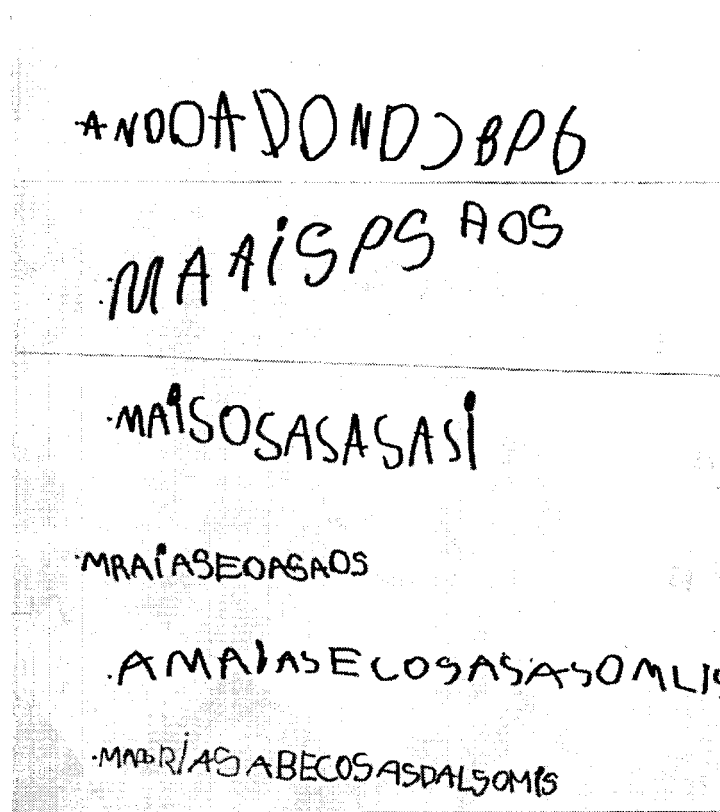 ANDOADONDJBPG
MAAiSPSAOS
MAiSOSASASASi
MRAiASEOASAOS
AMAIASECOSASASOMLIS
MADRíASABECOSASDALSOMIS